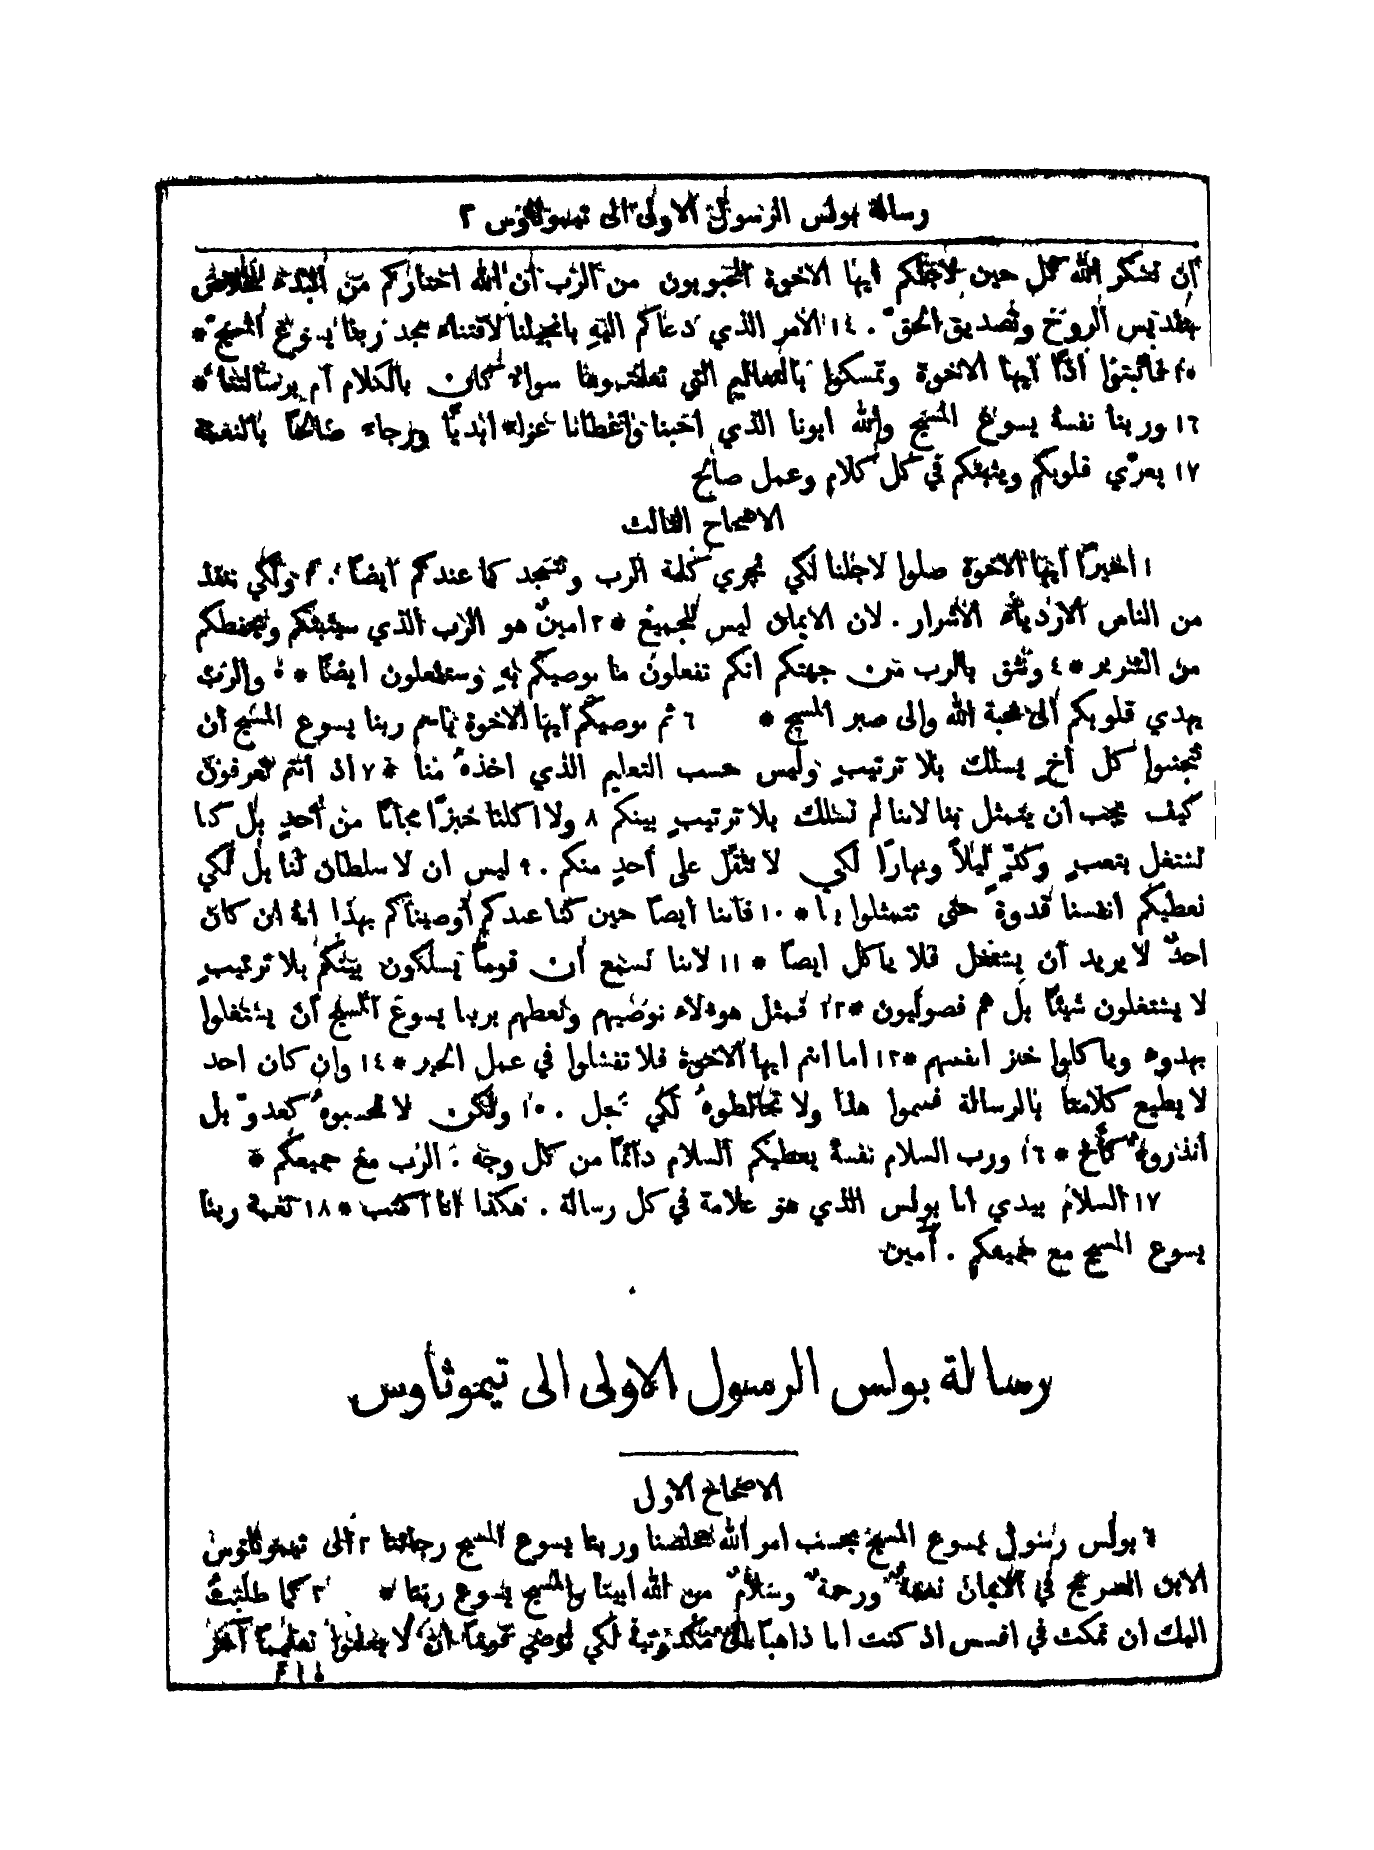 رسالة بولس الرسول الاولى الى تيموثاوس ٢
ان نشكر الله كل حين لاجلكم ايها الاخوة المحبوبون من الرب ان الله اختاركم من البدء للخلاص
بتقديس الروح وتصديق الحق . ١٤ الامر الذي دعاكم اليهِ بانجيلنا لاقتناء مجد ربنا يسوع المسيح *
١٥ فاثبتوا اذًا ايها الاخوة وتمسكوا بالتعاليم التي تعلمتموها سواء كان بالكلام ام برسالتنا *
١٦ وربنا نفسهُ يسوع المسيح والله ابونا الذي احبنا واعطانا عزاء ابديًّا ورجاء صالحًا بالنعمة
١٧ يعزّي قلوبكم ويثبتكم في كل كلام وعمل صالح
الاصحاح الثالث
١ اخيرًا ايها الاخوة صلوا لاجلنا لكي تجري كلمة الرب وتتمجد كما عندكم ايضًا . ٢ ولكي ننقذ
من الناس الاردياء الاشرار . لان الايمان ليس للجميع * ٣ امينٌ هو الرب الذي سيثبتكم ويحفظكم
من الشرير * ٤ ونثق بالرب من جهتكم انكم تفعلون ما نوصيكم بهِ وستفعلون ايضًا * ٥ والرب
يهدي قلوبكم الى محبة الله والى صبر المسيح * ٦ ثم نوصيكم ايها الاخوة باسم ربنا يسوع المسيح ان
تتجنبوا كل أخٍ يسلك بلا ترتيبٍ وليس حسب التعليم الذي اخذهُ منا * ٧ اذ انتم تعرفون
كيف يجب ان يتمثل بنا لاننا لم نسلك بلا ترتيبٍ بينكم ٨ ولا اكلنا خبزًا مجانًا من أحدٍ بل كنا
نشتغل بتعبٍ وكدٍّ ليلاً ونهارًا لكي لا نثقّل على أحدٍ منكم . ٩ ليس ان لا سلطان لنا بل لكي
نعطيكم انفسنا قدوة حتى تتمثلوا بنا * ١٠ فاننا ايضًا حين كنا عندكم أوصيناكم بهذا انهُ ان كان
احدٌ لا يريد أن يشتغل فلا ياكل ايضًا * ١١ لاننا نسمع أن قومًا يسلكون بينكم بلا ترتيبٍ
لا يشتغلون شيئًا بل هم فضوليون * ١٢ فمثل هولاء نوصيهم ونعظهم بربنا يسوع المسيح أن يشتغلوا
بهدوء وياكلوا خبز انفسهم * ١٣ اما انتم ايها الاخوة فلا تفشلوا في عمل الخير * ١٤ وان كان احد
لا يطيع كلامنا بالرسالة فسموا هذا ولا تخالطوهُ لكي يخجل . ١٥ ولكن لا تحسبوهُ كعدوّ بل
أنذروهُ كأخ * ١٦ ورب السلام نفسهُ يعطيكم السلام دائمًا من كل وجه . الرب مع جميعكم *
١٧ السلام بيدي انا بولس الذي هو علامة في كل رسالة . هكذا انا اكتب * ١٨ نعمة ربنا
يسوع المسيح مع جميعكم . آمين
رسالة بولس الرسول الاولى الى تيموثاوس
الاصحاح الاول
١ بولس رسول يسوع المسيح بحسب امر الله مخلصنا وربنا يسوع المسيح رجائنا ٢ الى تيموثاوس
الابن الصريح في الايمان نعمةٌ ورحمةٌ وسلامٌ من الله ابينا والمسيح يسوع ربنا * ٣ كما طلبت
اليك ان تمكث في افسس اذ كنت انا ذاهبًا الى مكدونية لكي توصي قومًا ان لا يعلموا تعليمًا آخر